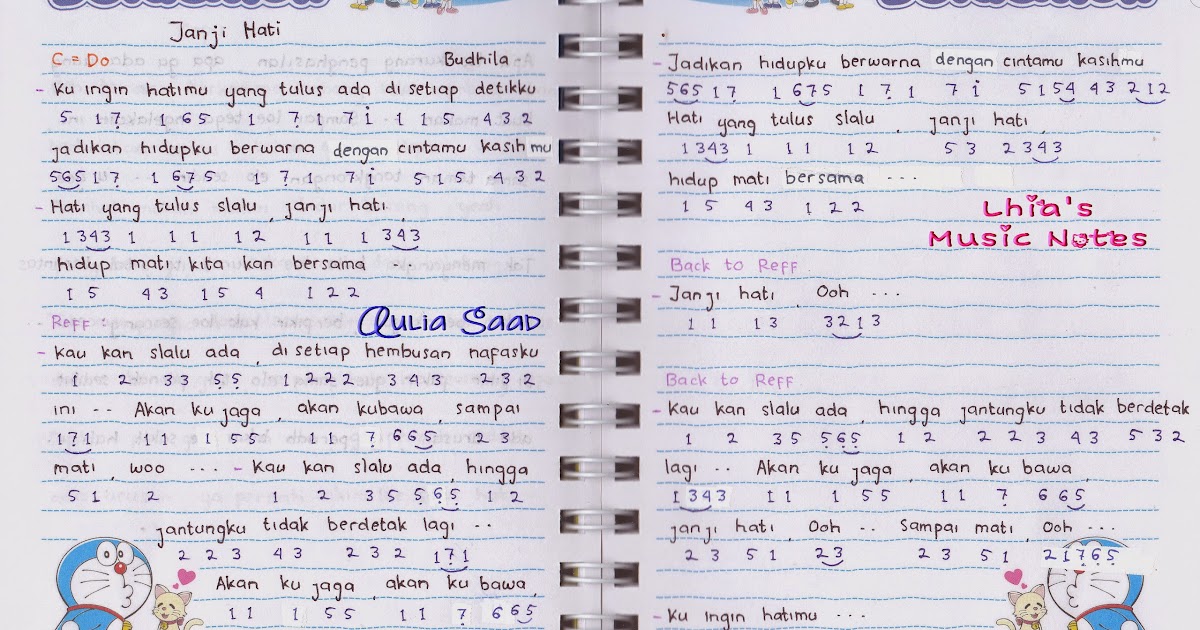 Janji Hati
C = Do Budhila
- Ku ingin hatimu yang tulus ada di setiap detikku
5 1 7 1 6 5 1 7 1 7 i 1 1 5 4 3 2
jadikan hidupku berwarna dengan cintamu kasihmu
5 6 5 1 7 1 6 7 5 1 7 1 7 i 5 1 5 4 3 2
- Hati yang tulus slalu , janji hati ,
1 3 4 3 1 1 1 1 2 1 1 1 3 4 3
hidup mati kita kan bersama ...
1 5 4 3 1 5 4 1 2 2
Reff : Aulia Saad
- Kau kan slalu ada , di setiap hembusan nafasku
1 2 3 3 5 5 1 2 2 2 3 4 3 2 3 2
ini .. Akan ku jaga , akan kubawa , sampai
1 7 1 1 1 1 5 5 1 1 7 6 6 5 2 3
mati , woo ... - Kau kan slalu ada , hingga
5 1 2 1 2 3 5 5 6 5 1 2
jantungku tidak berdetak lagi ..
2 2 3 4 3 2 3 2 1 7 1
Akan ku jaga , akan ku bawa ,
1 1 1 5 5 1 1 7 6 6 5
- Jadikan hidupku berwarna dengan cintamu kasihmu
5 6 5 1 7 1 6 7 5 1 7 1 7 i 5 1 5 4 4 3 2 1 2
Hati yang tulus slalu , janji hati ,
1 3 4 3 1 1 1 1 2 5 3 2 3 4 3
hidup mati bersama ...
1 5 4 3 1 2 2
Lhia's
Music Notes
Back to Reff
- Janji hati , Ooh ...
1 1 1 3 3 2 1 3
Back to Reff
- Kau kan slalu ada , hingga jantungku tidak berdetak
1 2 3 5 5 6 5 1 2 2 2 3 4 3 5 3 2
lagi .. Akan ku jaga , akan ku bawa ,
1 3 4 3 1 1 1 5 5 1 1 7 6 6 5
janji hati , Ooh .. Sampai mati , Ooh ...
2 3 5 1 2 3 2 3 5 1 2 1 7 6 5
- Ku ingin hatimu ...